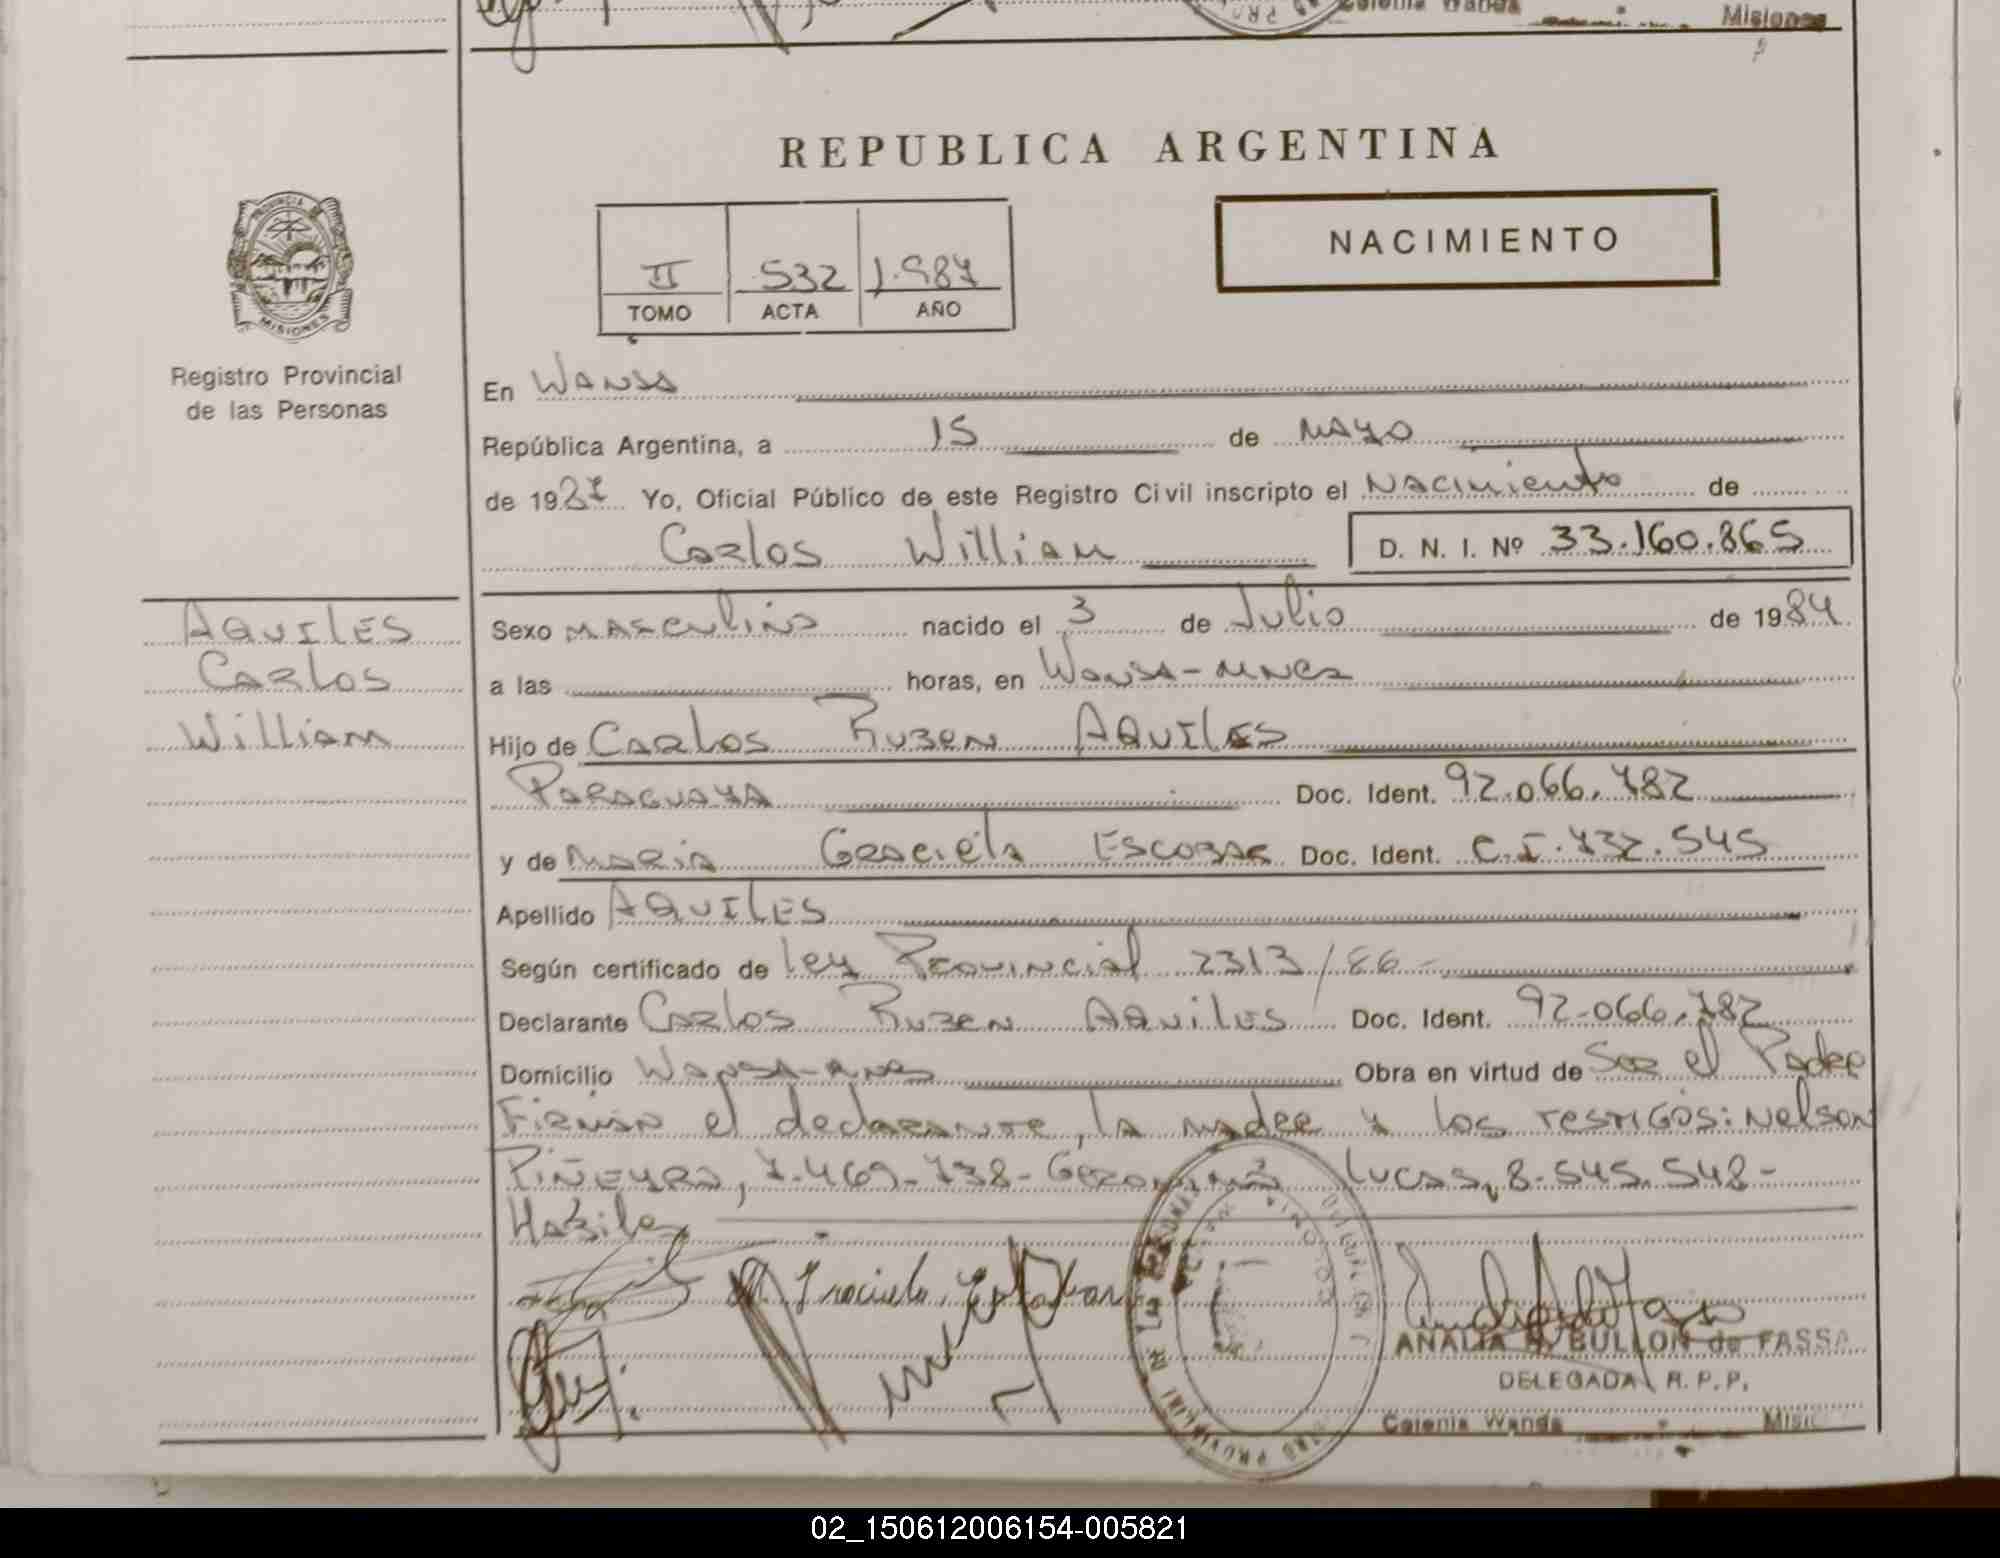 Colonia Wanda Misiones
REPUBLICA ARGENTINA
PROVINCIA DE
MISIONES
Registro Provincial
de las Personas
II 532 1.987
TOMO ACTA AÑO
NACIMIENTO
En Wanda
República Argentina, a 15 de Mayo
de 1987 Yo, Oficial Público de este Registro Civil inscripto el Nacimiento de
Carlos William D. N. I. Nº 33.160.865
AQUILES
Carlos
William
Sexo Masculino nacido el 3 de Julio de 1984
a las horas, en Wanda-Mnes
Hijo de Carlos Ruben AQUILES
Paraguaya Doc. Ident. 92.066.782
y de Maria Graciela Escobar Doc. Ident. C.I. 732.545
Apellido AQUILES
Según certificado de Ley Provincial 2313/86-
Declarante Carlos Ruben Aquiles Doc. Ident. 92.066.782
Domicilio Wanda-Mnes Obra en virtud de Ser el Padre
Firman el declarante, la madre y los testigos: Nelson
Piñeyro, 7.469.738- Geronimo Lucas, 8.545.548-
Habiles
Graciela Escobar
ANALIA BULLON de FASSA
DELEGADA R. P. P.
Colonia Wanda Misi
02_150612006154-005821